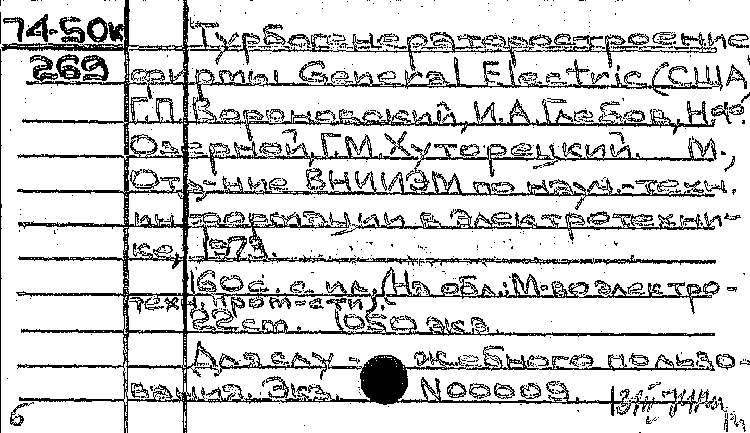 74-50к Турбогенераторостроение
269 фирмы General Electric (США)
Г.П. Вороновский, И.А. Глебов, Н.Ф.
Озерной, Г.М. Хуторецкий. М.,
Отд-ние ВНИИЭМ по науч.-техн.
информации в электротехни-
ке, 1973.
160 с. с ил. (На обл.: М-во электро-
техн. пром-сти).
22 см. 1050 экз.
Для слу - жебного пользо-
вания. Экз. N00009.
б